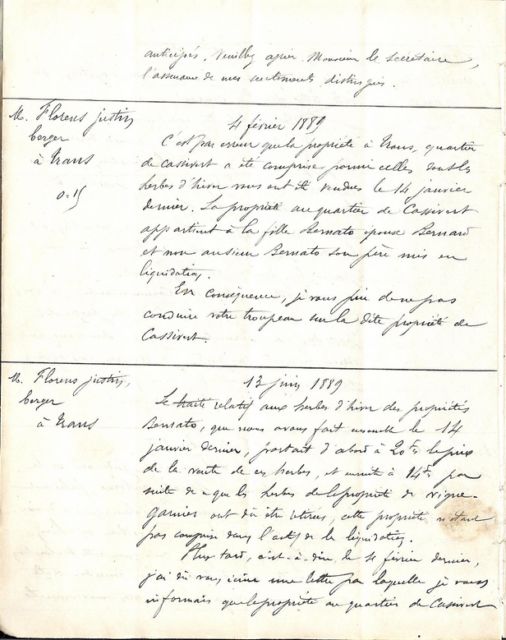 anticipés, Veuillez agréer Monsieur le secrétaire,
l'assurance de mes sentiments distingués.
M. Florens justin
berger
à Trans
0.15
4 février 1889
C'est par erreur que la propriété à Trans, quartier
de Cassivert a été comprise parmi celles dont les
herbes d'hiver vous ont été vendues le 14 janvier
dernier. La propriété au quartier de Cassivert
appartient à la fille Bernato épouse Bernard
et non au sieur Bernato son père mis en
liquidation.
En conséquence, je vous prie de ne pas
conduire votre troupeau sur la dite propriété de
Cassivert.
M. Florens justin,
berger
à Trans
13 juin 1889
Le traité relatif aux herbes d'hiver des propriétés
Bernato, que nous avons fait ensemble le 14
janvier dernier, portait d'abord à 20 fs le prix
de la vente de ces herbes, et ensuite à 14 fs par
suite de ce que les herbes de la propriété de vigne-
garnier ont dû être retirées, cette propriété n'étant
pas comprise dans l'actif de la liquidation.
Plus tard, c'est-à-dire le 4 février dernier,
j'ai dû vous écrire une lettre par laquelle je vous
informais que la propriété au quartier de Cassivert